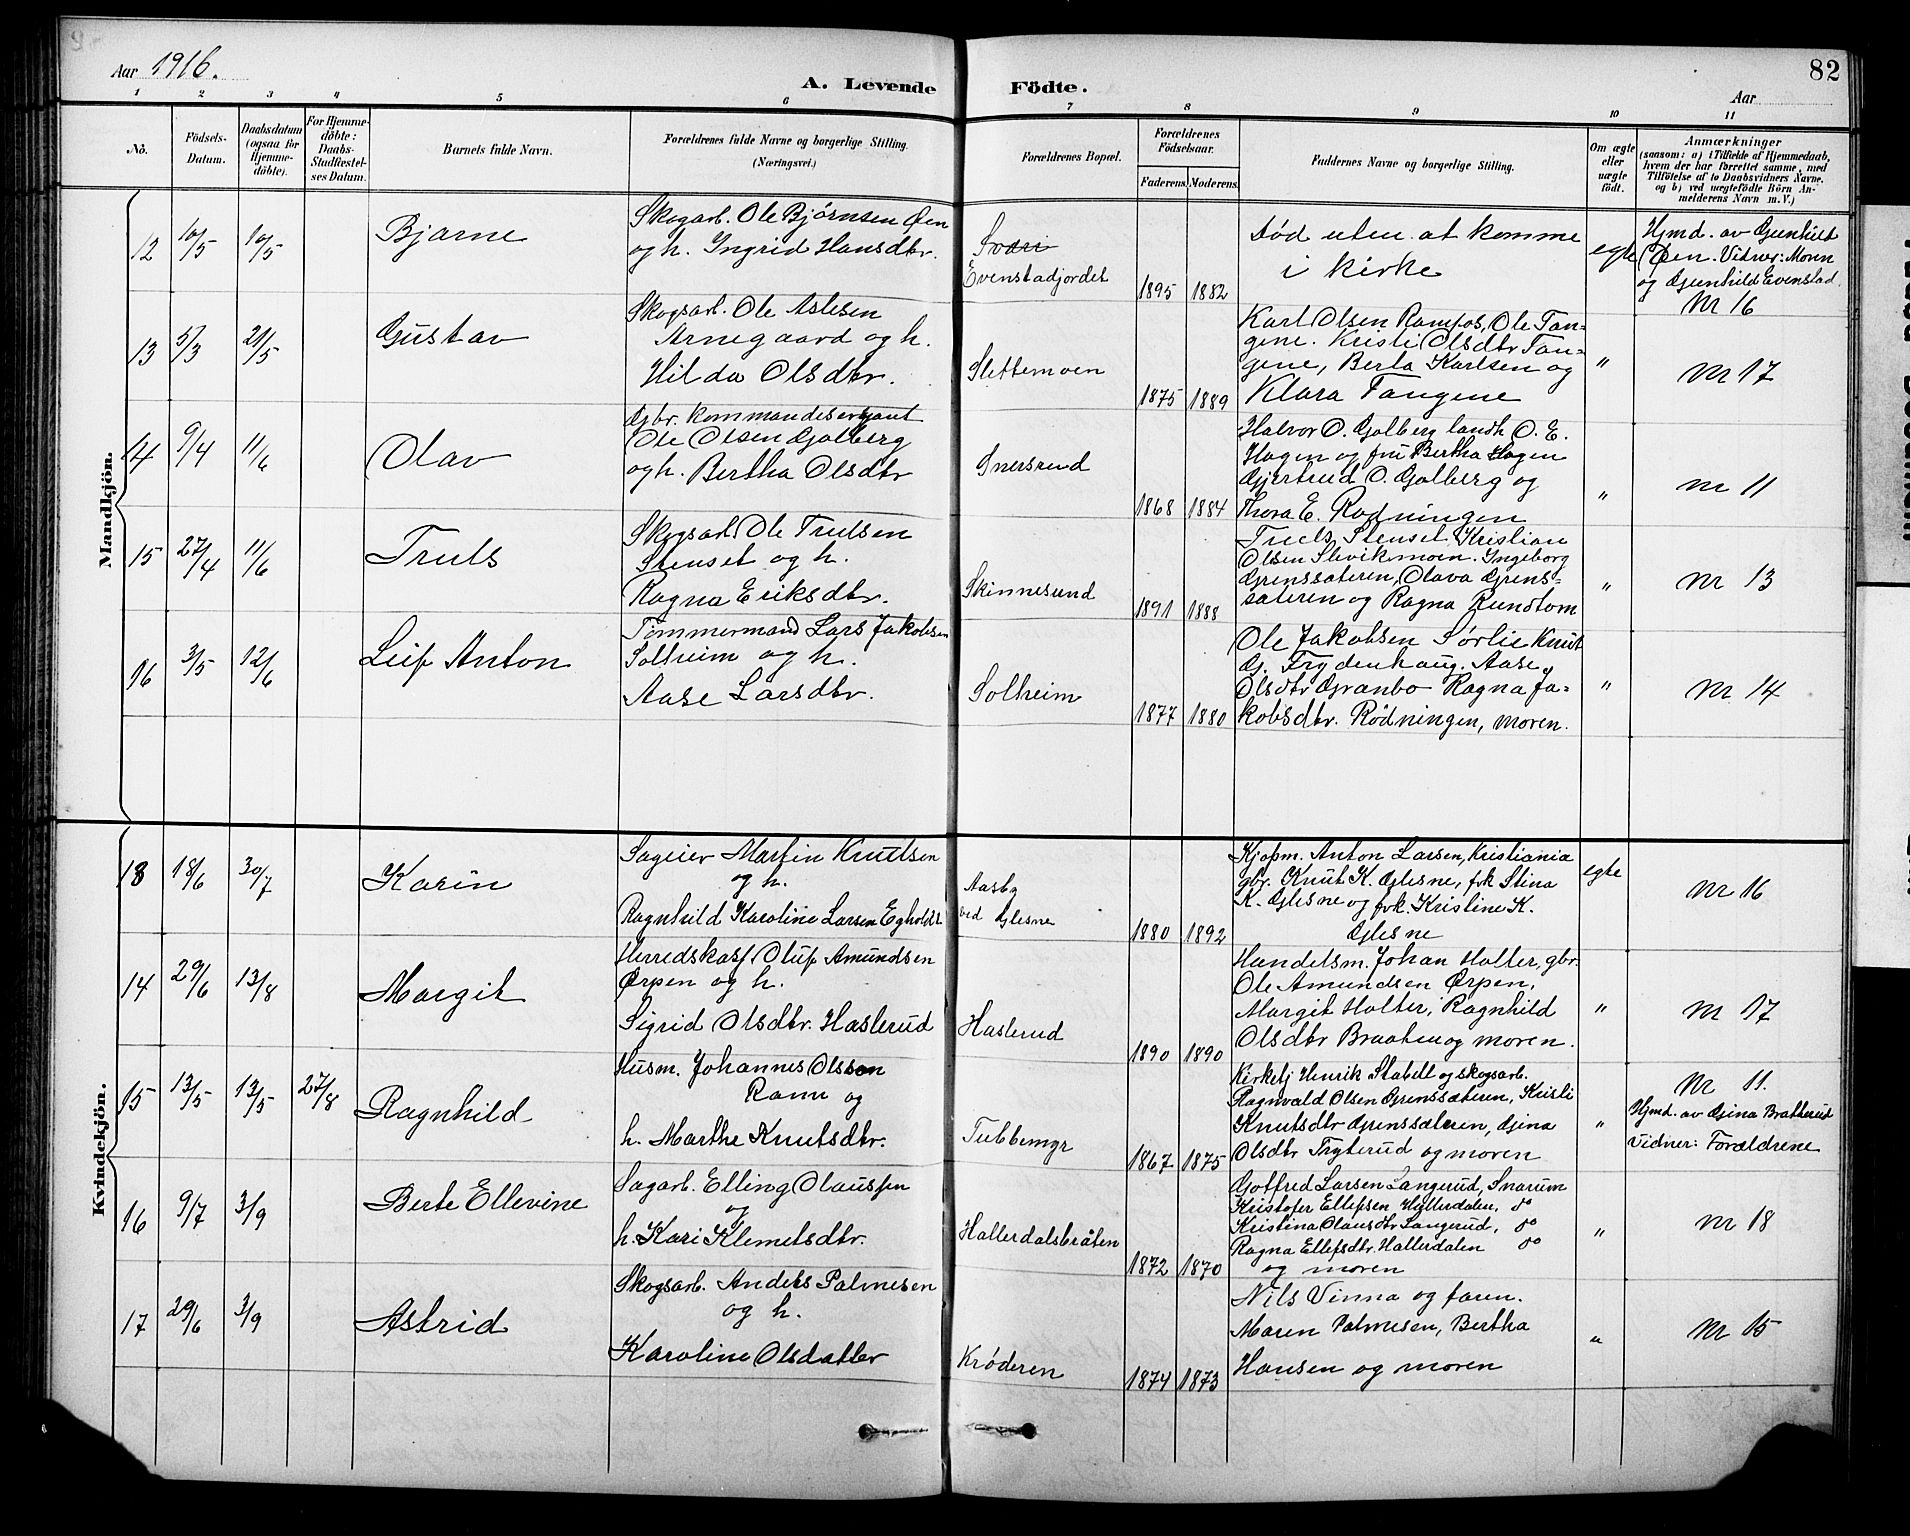 Aar 1916.
A. Levende Födte.
82
Aar
1 2 3 4 5 6 7 8 9 10 11
No.
Födsels-Datum.
Daabsdatum (ogsaa for Hjemme-döbte).
For Hjemme-döbte: Daabs-Stadfæstel-ses Datum.
Barnets fulde Navn.
Forældrenes fulde Navne og borgerlige Stilling.
(Næringsvei.)
Forældrenes Bopæl.
Forældrenes Födselsaar.
Faderens. Moderens.
Faddernes Navne og borgerlige Stilling.
Om ægte eller uægte födt.
Anmærkninger
(saasom: a) i Tilfælde af Hjemmedaab,
hvem der har forrettet samme, med
Tilföielse af to Daabsvidners Navne,
og b) ved uægtefödte Börn An-
melderens Navn m. V.)
Mandkjön.
12 10/5 10/5 Bjarne
Skogarb. Ole Bjørnsen Øen
og h. Ingrid Hansdtr.
Svari
Evenstadjordet
1895 1882
Død uten at komme
i kirke
egte
Hjmd. av Gunhild
Øen. Vidner: Moren
og Gunhild Evenstad.
Nr 16
13 5/3 21/5 Gustav
Skogsarb. Ole Aslesen
Arnegaard og h.
Hilda Olsdtr.
Slettemoen
1875 1889
Karl Olsen Ramfos, Ole Tan-
gene. Kristi Olsdtr Tan-
gene, Berta Karlsen og
Klara Tangene
"
Nr 17
14 9/4 11/6 Olav
Gbr. kommandersergant
Ole Olsen Golberg
og h. Bertha Olsdtr
Snersrud
1868 1884
Halvor O. Golberg landh O. E.
Hagen og fru Bertha Hagen
Gjertrud O. Golberg og
Thora E. Rodningen
"
Nr 11
15 27/4 11/6 Truls
Skogsarb. Ole Trulsen
Stenset og h.
Ragna Eriksdtr.
Skinnesund
1891 1888
Truls Stenset. Kristian
Olsen Slevikmoen. Ingeborg
Grenssæteren, Olava Grens-
sæteren og Ragna Rundtom
"
Nr 13
16 3/5 12/6 Leif Anton
Tømmermand Lars Jakobsen
Solheim og h.
Aase Larsdtr.
Solheim
1877 1880
Ole Jakobsen Sørlie Knut
G. Frydenhaug. Aase
Olsdtr Granbo Ragna Ja-
kobsdtr. Rødningen, moren.
"
Nr 14
Kvindekjön.
13 18/6 30/7 Karin
Sageier Martin Knutsen
og h.
Ragnhild Karoline Larsen Egholdt
Aasby
ved Glesne
1880 1892
Kjøpm. Anton Larsen, Kristiania
gbr. Knut K. Glesne, frk Stina
K. Glesne og frk. Kristine K.
Glesne
egte
Nr 16
14 29/6 13/8 Margit
Herredskasf Oluf Amundsen
Ørpen og h.
Sigrid Olsdtr. Haslerud
Haslerud
1890 1890
Handelsm. Johan Holter, gbr.
Ole Amundsen Ørpen,
Margit Holter, Ragnhild
Olsdtr Braaten og moren.
"
Nr 17
15 13/5 13/5 27/8 Ragnhild
Husm. Johannes Olsen
Ramu og
h. Marthe Knutsdtr.
Tubbemyr
1867 1875
Kirketj Henrik Stabell og skogsarb.
Ragnvald Olsen Grenssæteren, Kristi
Knutsdtr Grenssæteren, Gina
Olsdtr Tryterud og moren
"
Nr 11.
Hjmd. av Gina Bratterud
Vidner: Forældrene
16 9/7 3/9 Berte Ellevine
Sagarb. Elling Olaussen
og
h. Kari Klemetsdtr.
Hallerdalsbråten
1872 1870
Gotfred Larsen Langerud, Snarum
Kristofer Ellefsen Hallerdalen, do
Kristina Olausdtr Langerud, do
Ragna Ellefsdtr. Hallerdalen do
og moren
"
Nr 18
17 29/6 3/9 Astrid
Skogsarb. Anders Palmesen
og h.
Karoline Olsdatter
Krøderen
1874 1873
Nils Vinna og faren.
Maren Palmesen, Bertha
Hansen og moren
"
Nr 15